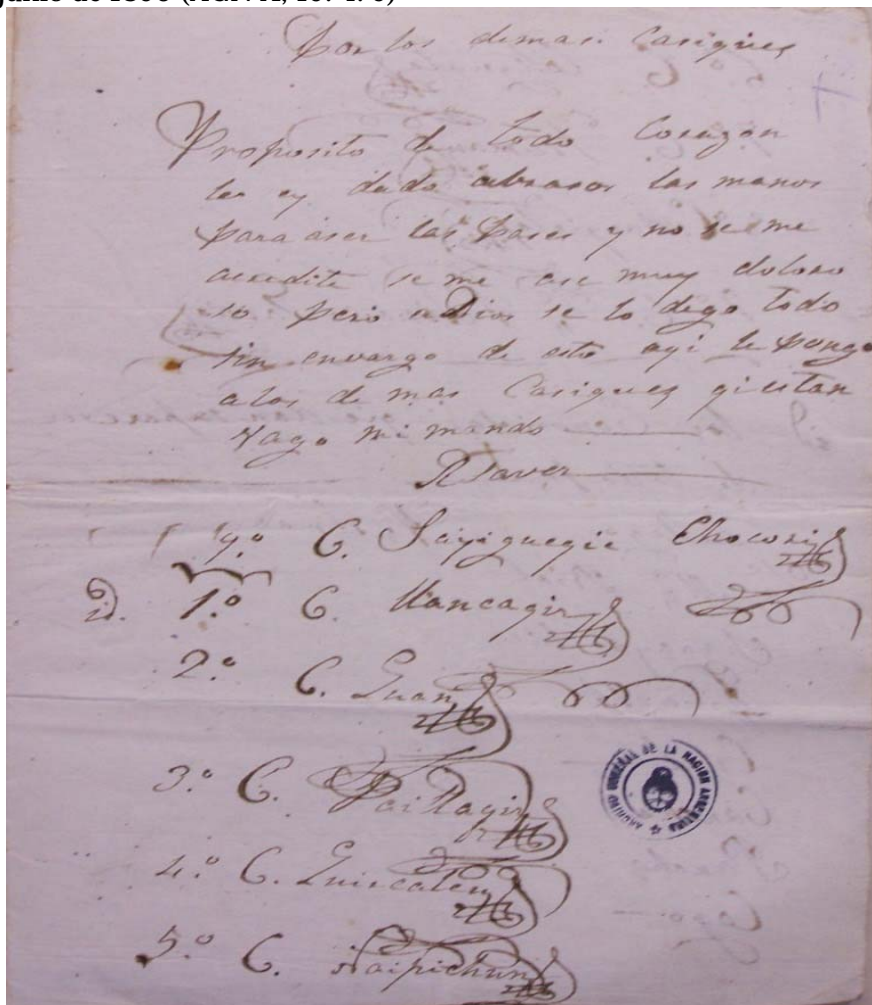 junio de 1896 (AGN A, 10. 4. 6)
Por los demas. Casiques
Proposito de todo Corazon
les ey dado abrasos las manos
para aser las Pases y no se me
acredite se me ase muy doloro
so. Pero a Dios se lo dego todo
sin envargo de esto ayi le pongo
a los de mas Casiques qi estan
vago mi mando
A Saver
C. Sayigueqie Chocori
1.º C. Llancaqir
2.º C. Guan
3.º C. Paillaqir
4.º C. Guircaleu
5.º C. Naipichun
ARCHIVO GENERAL DE LA NACION ARGENTINA